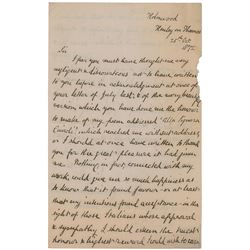 Holmwood
Henley on Thames
25th Oct
1872
Sir
I fear you must have thought me very
negligent & discourteous not to have written
to you before in acknowledgment at once of
your letter of July last, & of the very beautiful
version which you have done me the honour
to make of my poem addressed 'Alla Signora
Cairoli', which reached me without address
or I should at once have written to thank
you for the great pleasure it had given
me. Nothing in fact connected with my
work could give me so much happiness as
to know that it found favour - or at least
that my intentions found acceptance - in the
sight of those Italians whose approval
& sympathy I should esteem the truest
honour & highest reward I could wish to